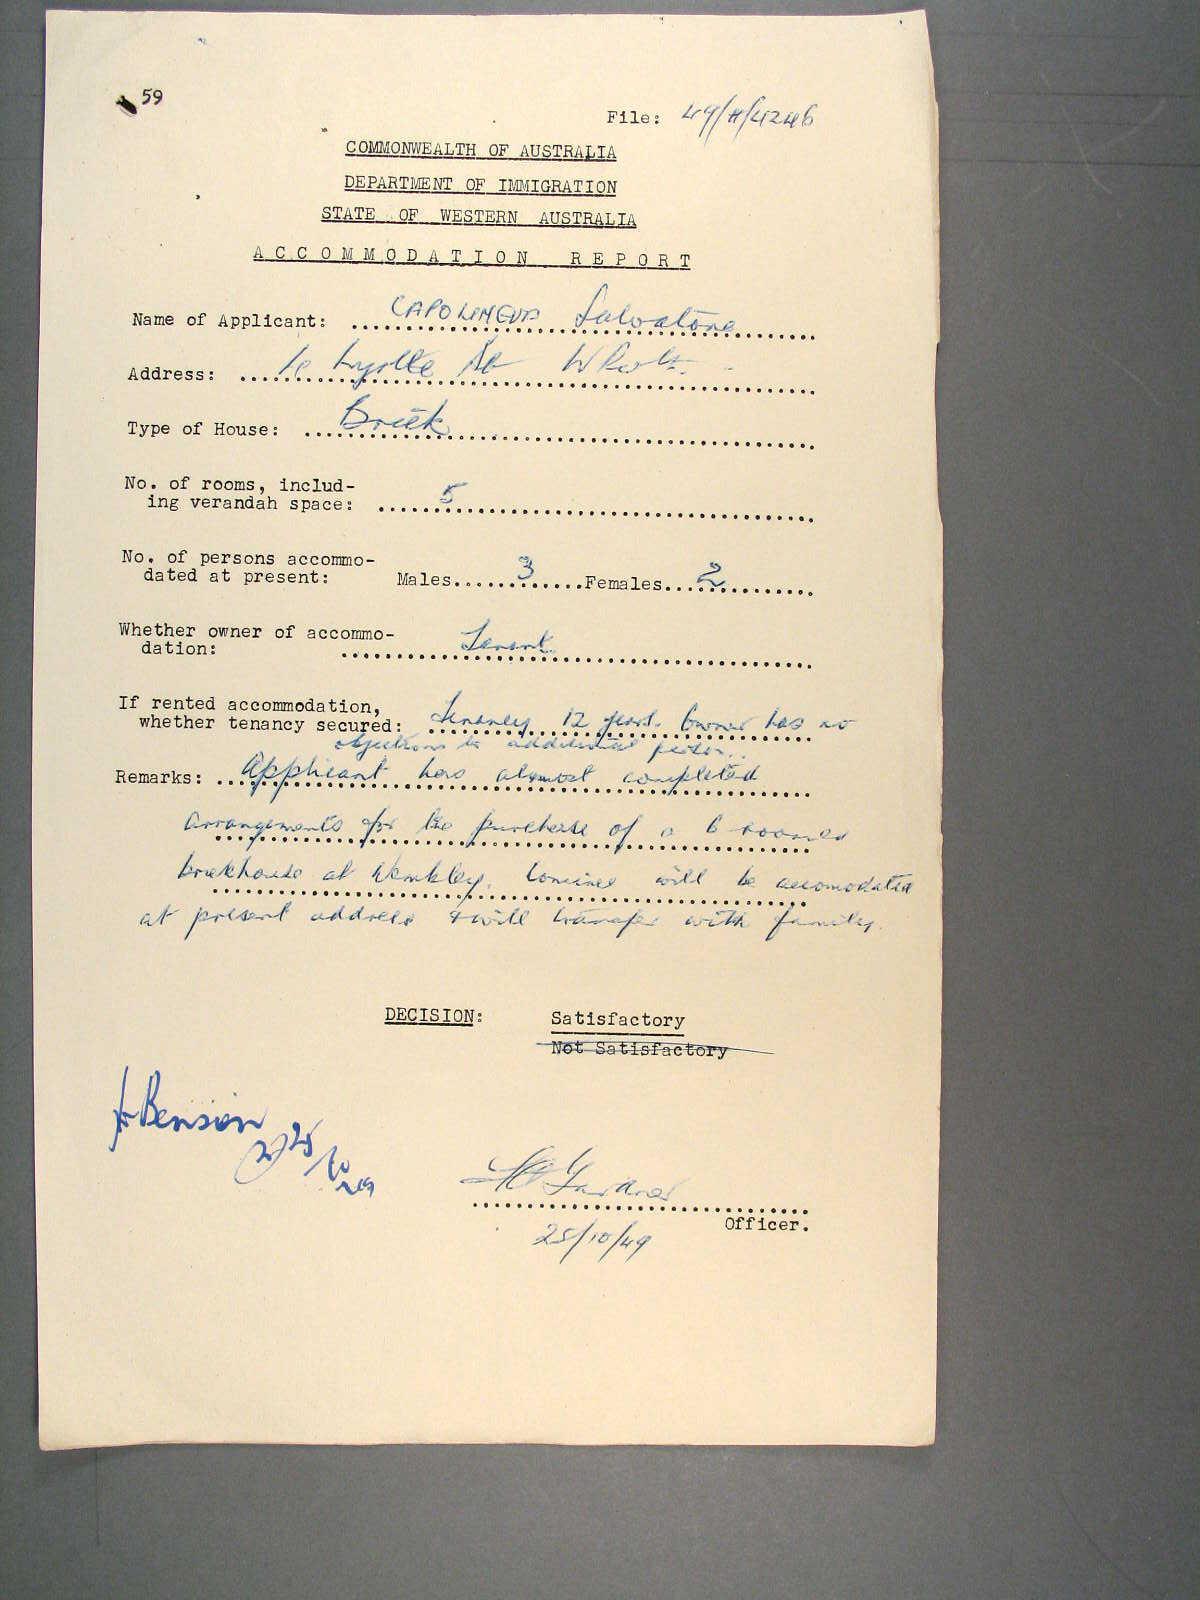 59
File: 49/H/4246
COMMONWEALTH OF AUSTRALIA
DEPARTMENT OF IMMIGRATION
STATE OF WESTERN AUSTRALIA
ACCOMMODATION REPORT
Name of Applicant: Salvatore
Address: St W
Type of House: Brick
No. of rooms, includ-
ing verandah space: 5
No. of persons accommo-
dated at present: Males 3 Females 2
Whether owner of accommo-
dation: Tenant
If rented accommodation,
whether tenancy secured: Tenancy 12 years. Owner has no
objections to additional person.
Remarks: Applicant has almost completed
arrangements for the purchase of a 6 roomed
brickhouse at Wembley. will be accomodated
at present address & will transfer with family.
DECISION: Satisfactory
Not Satisfactory
Benson
25/10/49
Gardner
Officer.
25/10/49